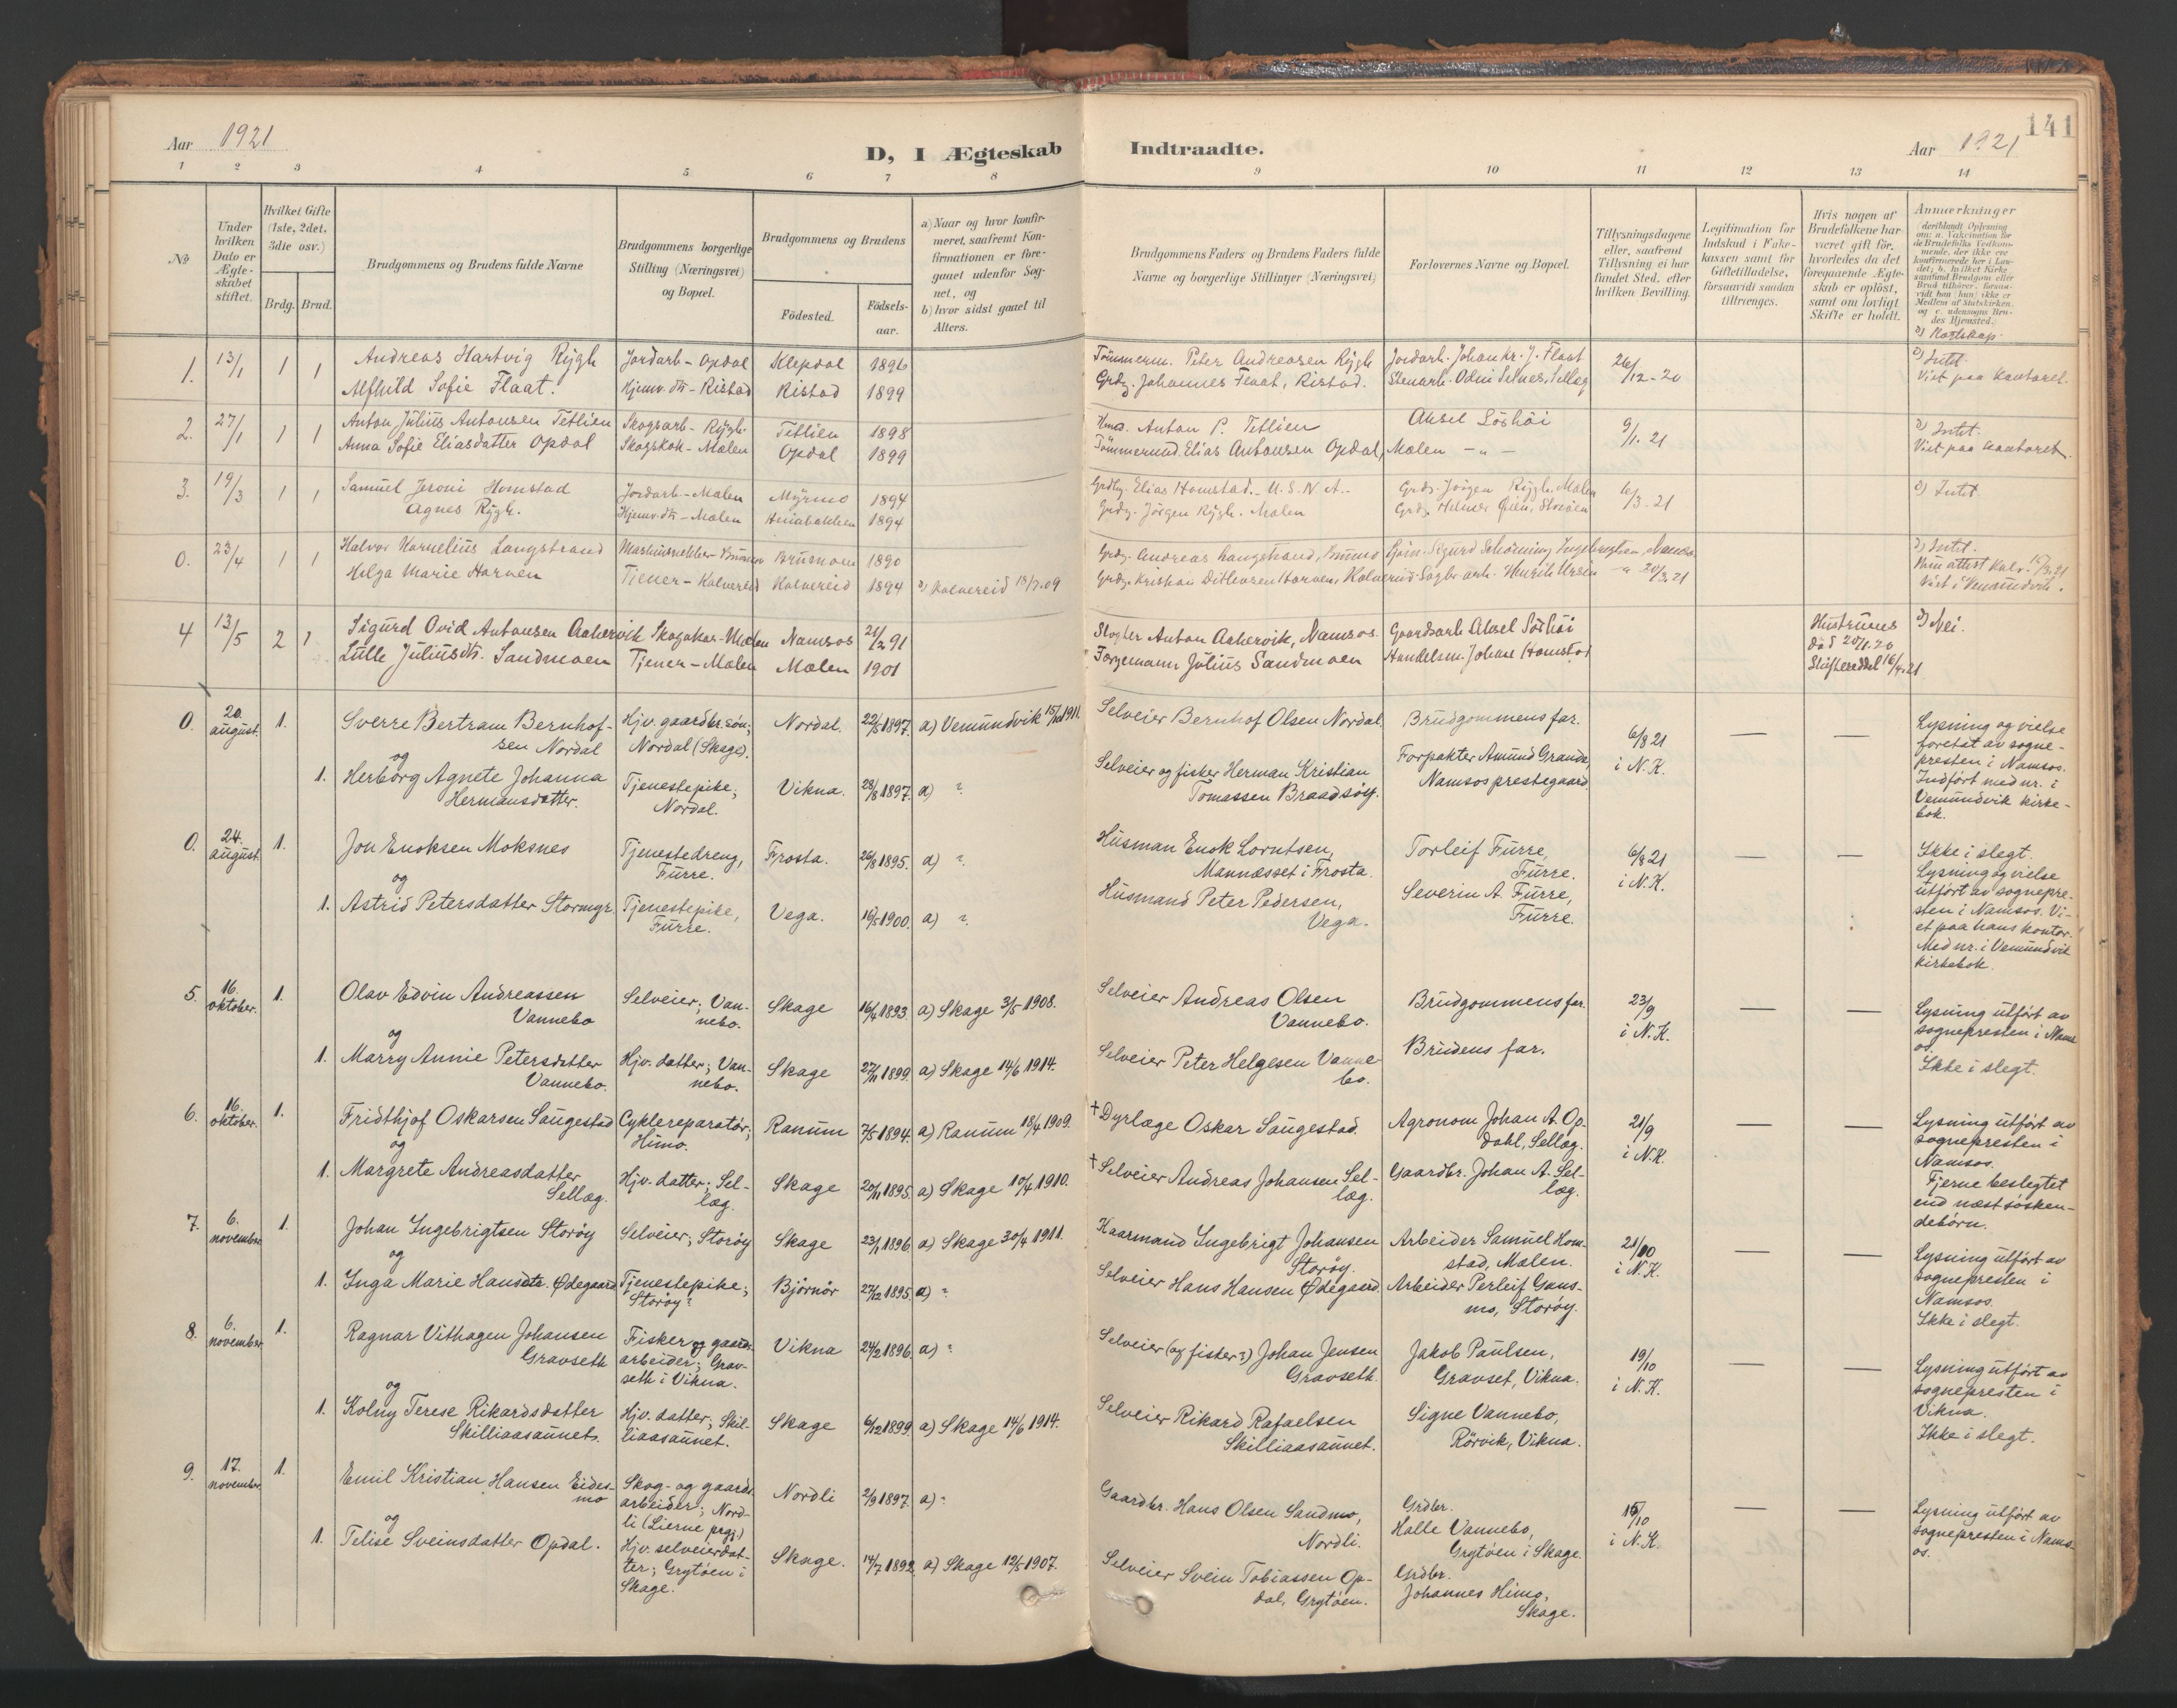 141
Aar 1921
D, I Ægteskab Indtraadte.
Aar 1921
1 2 3 4 5 6 7 8 9 10 11 12 13 14
No
Under hvilken Dato er Ægte-skabet stiftet.
Hvilket Gifte (1ste, 2det, 3die osv.)
Brdg. Brud.
Brudgommens og Brudens fulde Navne
Brudgommens borgerlige Stilling (Næringsvei) og Bopæl.
Brudgommens og Brudens
Födested.
Födsels-aar.
a) Naar og hvor konfir-meret, saafremt Kon-firmationen er fore-gaaet udenfor Sog-net, og
b) hvor sidst gaaet til Alters.
Brudgommens Faders og Brudens Faders fulde Navne og borgerlige Stillinger (Næringsvei)
Forlovernes Navne og Bopæl.
Tillysningsdagene eller, saafremt Tillysning ei har fundet Sted, efter hvilken Bevilling.
Legitimation for Indskud i Enke-kassen samt for Giftetilladelse, forsaavidt saadan tiltrænges.
Hvis nogen af Brudefolkene har været gift för, hvorledes da det foregaaende Ægte-skab er oplöst, samt om lovligt Skifte er holdt.
Anmærkninger
1. 13/1 1 1 Andreas Hartvig Rygh Jordarb - Opdal Klepdal 1896 Tömmerm. Peter Andreasen Rygh Jordarb. Johan kr. J. Flaat 26/12-20 Intet.
Alfhild Sofie Flaat. Hjemv. dtr - Ristad Ristad 1899 Grdg. Johannes Flaat, Ristad. Stenarb. Odin Selnes, Sellæg Viet paa kontoret.
2. 27/1 1 1 Anton Julius Antonsen Tetlien Skogsarb - Rygh. Tetlien 1898 Hmd. Anton P. Tetlien Aksel Löshöi 9/1.21 Intet.
Anna Sofie Eliasdatter Opdal Skogskok - Mælen Opdal 1899 Tömmermd. Elias Antonsen Opdal, Mælen - " - Viet paa kontoret.
3. 19/3 1 1 Samuel Jeroni Homstad Jordarb - Mælen Myrmo 1894 Elias Homstad. U.S.N.A. Grdg. Jörgen Rygh. Mælen 6/3-21 Intet.
Agnes Rygh. Hjemv. dtr - Mælen 1894 Grdg. Jörgen Rygh. Mælen Grdg. Helmer Öien,
0. 23/4 1 1 Halvor Kornelius Langstrand 1890 Grdg. Andreas Langstrand, Sigurd Schöning Ingebrigtsen, Namsos Intet.
Helga Marie Horven Tjener - Kolvereid Kolvereid 1894 Kolvereid 18/7.09 Grdg. Kristian Ditlevsen Horven, Kolvereid Sagbr. arb. Henrik Ursin " 20/3.21 Viet i Vemundvik.
4 13/5 2 1 Sigurd Ovid Antonsen Aakervik Skogskar - Mælen Namsos 21/2 91 Anton Aakervik, Namsos. Gaardsarb Aksel Löshöi Hustruens död 20/1.20 Nei.
Lulle Juliusdtr. Sandmoen Tjener - Mælen Mælen 1901 Forgemann Julius Sandmoen Handelsm. Johne Homstad Skifteseddel 16/4.21
0. 20. august. 1. Sverre Bertram Bernhof-sen Nordal Hjv. gaardbr.sön; Nordal (Skage). Nordal. 22/5 1897. a) Vemundvik 15/10 1911. Selveier Bernhof Olsen Nordal. Brudgommens far. 6/8 21 i N.K. — — Lysning og vielse foretat av sogne-presten i Namsos. Indfört med nr. i Vemundvik kirke-bok.
og
1. Herborg Agnete Johanna Hermansdatter. Tjenestepike; Nordal. Vikna. 28/8 1897. a) ? Selveier og fisker Herman Kristian Tomassen Braadsöy. Forpakter Amund Grande, Namsos prestegaard.
0. 24. august. 1. Jon Enoksen Moksnes Tjenestedreng, Furre. Frosta. 26/8 1895. a) ? Husman Enok Lorntsen, Mannæsset i Frosta. Torleif Furre, Furre. 6/8 21 i N.K. — — Ikke i slegt. Lysning og vielse utfört av sognepre-sten i Namsos. Vi-et paa hans kontor. Med nr. i Vemundvik kirkebok.
og
1. Astrid Petersdatter Stormyr. Tjenestepike, Furre. Vega. 16/5 1900. a) ? Husmand Peter Pedersen, Vega. Severin A. Furre, Furre.
5. 16. oktober. 1. Olav Edvin Andreassen Vannebo Selveier; Van-nebo. Skage 16/4 1893. a) Skage 3/5 1908. Selveier Andreas Olsen Vannebo. Brudgommens far. 23/9 i N.K. — — Lysning utfört av sognepresten i Nams-os. Ikke i slegt.
og
1. Marry Annie Petersdatter Vannebo. Hjv. datter; Van-nebo. Skage 27/11 1899. a) Skage 14/6 1914. Selveier Peter Helgesen Vanne-bo. Brudens far.
6. 16. oktober. 1. Fridthjof Oskarsen Saugestad Cyklereparatör; Himo. Ranum 7/5 1894. a) Ranum 18/4 1909. † Dyrlæge Oskar Saugestad. Agronom Johan A. Op-dahl, Sellæg. 21/9 i N.K. — — Lysning utfört av sognepresten i Namsos. Fjerne beslegtet end næstsösken-debörn.
og
1. Margrete Andreasdatter Sellæg. Hjv. datter; Sel-læg. Skage 20/11 1895. a) Skage 10/4 1910. † Selveier Andreas Johansen Sel-læg. Gaardbr. Johan A. Sel-læg.
7. 6. november. 1. Johan Ingebrigtsen Storöy Selveier; Storöy Skage 23/1 1896. a) Skage 30/4 1911. Kaarmand Ingebrigt Johansen Storöy. Arbeider Samuel Hom-stad, Mælen. 21/10 i N.K. — — Lysning utfört av sognepresten i Namsos. Ikke i slegt.
og
1. Inga Marie Hansdtr. Ødegaard Tjenestepike; Storöy? Björnör 27/12 1895. a) ? Selveier Hans Hansen Ødegaard. Arbeider Perleif Gans-mo, Storöy.
8. 6. november. 1. Ragnar Vithagen Johansen Gravseth Fisker og gaards-arbeider; Grav-seth i Vikna. Vikna 24/2 1896. a) ? Selveier (og fisker?) Johan Jensen Gravseth. Jakob Paulsen, Gravset, Vikna. 19/10 i N.K. — — Lysning utfört av sognepresten i Vikna. Ikke i slegt.
og
1. Kolny Terese Rikardsdatter Skilliaasaunet. Hjv. datter; Skil-liaasaunet. Skage 6/12 1899. a) Skage 14/6 1914. Selveier Rikard Rafaelsen Skilliaasaunet. Signe Vannebo, Rörvik, Vikna.
9. 17. november. 1. Emil Kristian Hansen Eides-mo Skog- og gaards-arbeider; Nord-li (Lierne prgj.) Nordli 2/9 1897. a) ? Gaardbr. Hans Olsen Sandmo, Nordli. Grdbr. Halle Vannebo, Grytöen i Skage. 15/10 i N.K. — — Lysning utfört av sognepresten i Nams-os.
og
1. Telise Sveinsdatter Opdal. Hjv. selveierdat-ter; Grytöen i Skage. Skage. 14/7 1892. a) Skage 12/5 1907. Selveier Svein Tobiassen Op-dal, Grytöen. Grdbr. Johannes Himo, Skage.